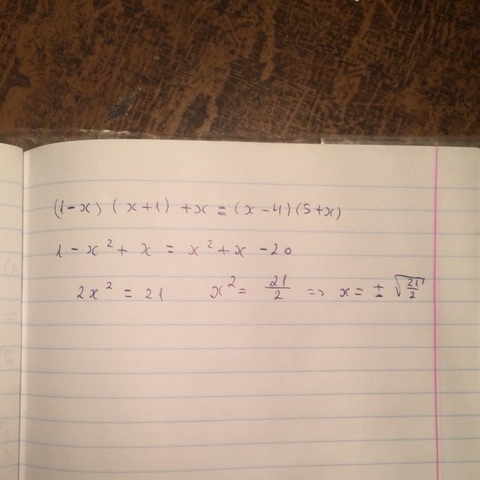 (1-x) (x+1) +x = (x-4)(5+x)
1 - x² + x = x² + x - 20
2x² = 21 x² = 21/2 => x = ± √21/2